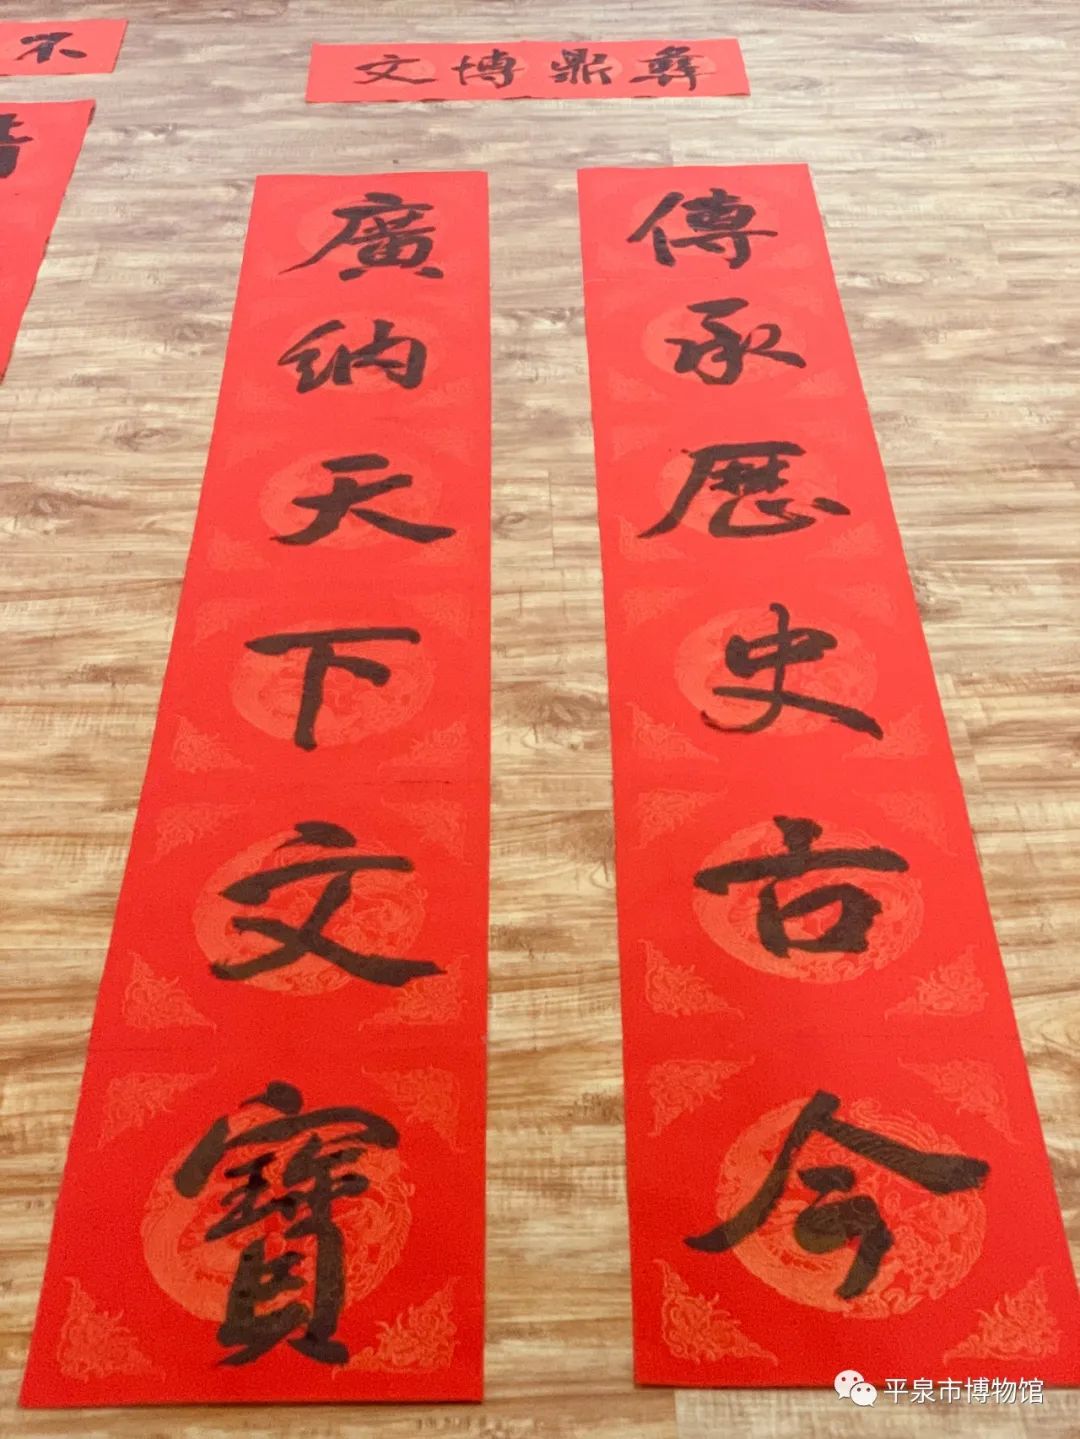 不
文博鼎彝
廣納天下文寶
傳承歷史古今
平泉市博物馆